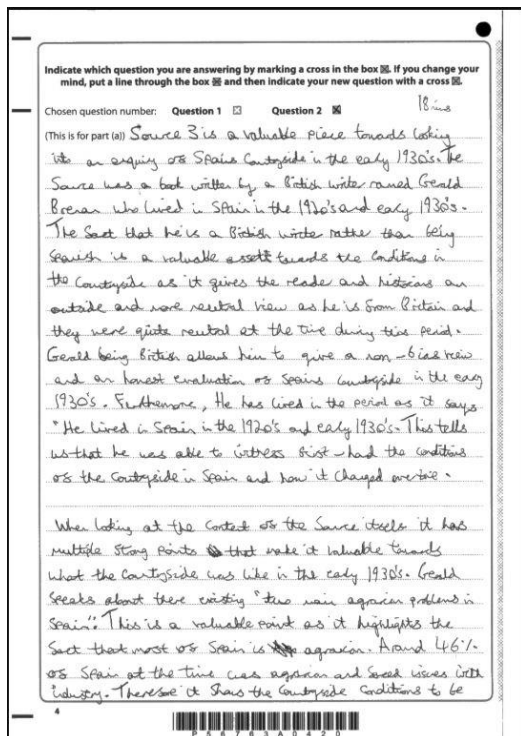 Indicate which question you are answering by marking a cross in the box ☒. If you change your
mind, put a line through the box ☒ and then indicate your new question with a cross ☒.
Chosen question number: Question 1 ☐ Question 2 ☒ 18 mins
(This is for part (a)) Source 3 is a valuable piece towards looking
into an enquiry of Spains Countryside in the early 1930's. The
Source was a book written by a British writer named Gerald
Brenan who lived in Spain in the 1920's and early 1930's.
The fact that he is a British writer rather than being
Spanish is a valuable assett towards the conditions in
the Countryside as it gives the reader and historians an
outside and more neutral view as he is from Britain and
they were quite neutral at the time during this period.
Gerald being British allows him to give a non-bias view
and an honest evaluation of Spains countryside in the early
1930's. Furthermore, He has lived in the period as it says
"He lived in Spain in the 1920's and early 1930's. This tells
us that he was able to witness first-hand the conditions
of the Countryside in Spain and how it Changed overtime.
When looking at the Context of the Source itself it has
multiple Strong Points that make it valuable towards
what the Countryside was like in the early 1930's. Gerald
Speaks about there existing "two main agrarian problems in
Spain". This is a valuable point as it highlights the
fact that most of Spain is agrarian. Around 46%
of Spain at the time was agrarian and faced issues with
industry. Therefore it Shows the Countryside Conditions to be
4
P56783A0420